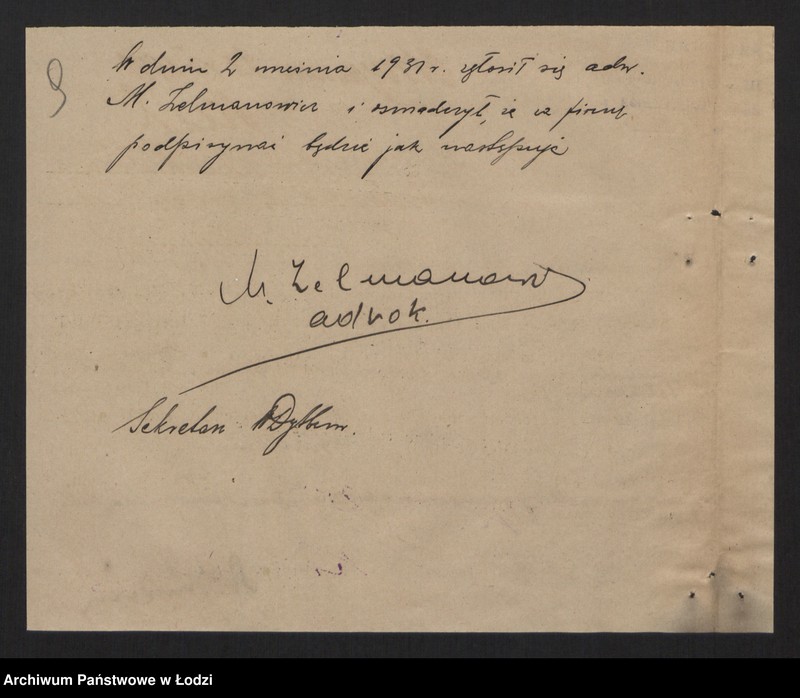 9
W dniu 2 września 1931 r. zgłosił się adw.
M. Zelmanowicz i oświadczył, że za firmę
podpisywać będzie jak następuje
M. Zelmanowicz
adwok.
Sekretarz
Archiwum Państwowe w Łodzi